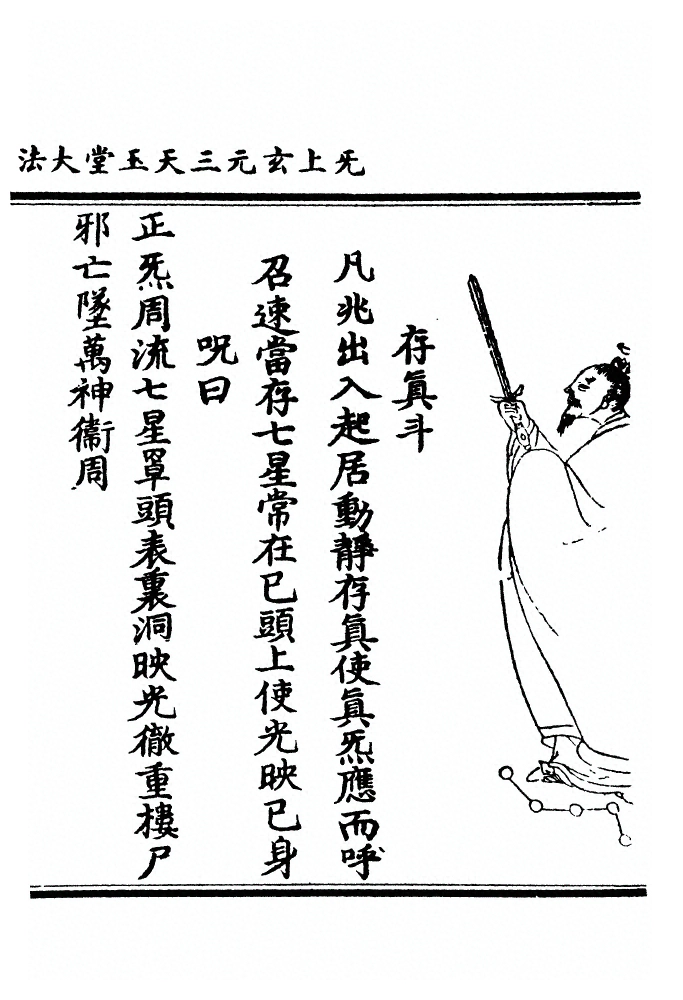 旡上玄元三天玉堂大法
存眞斗
凡兆出入起居動靜存眞使眞炁應而呼
召速當存七星常在已頭上使光映已身
呪曰
正炁周流七星罩頭表裏洞映光徹重樓尸
邪亡墜萬神衞周